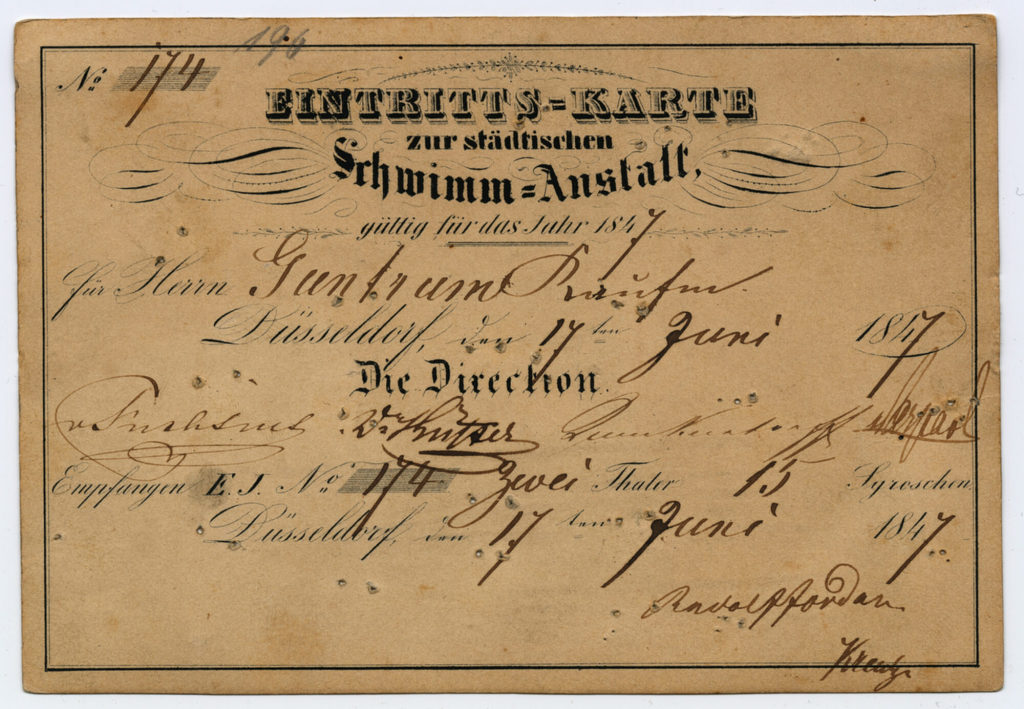 196
No 174
EINTRITTS=KARTE
zur städtischen
Schwimm=Anstalt,
gültig für das Jahr 1847
für Herrn Guntrum Kaufm.
Düsseldorf, den 17ten Juni 1847
Die Direction.
Empfangen E. J. No 174 Zwei Thaler 15 Sgroschen
Düsseldorf, den 17ten Juni 1847
Rudolf Jordan